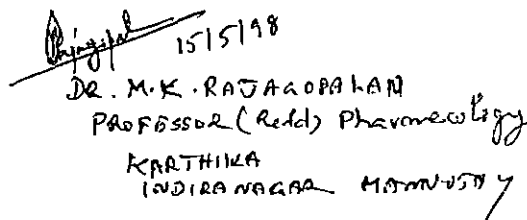 Rajagopal 15/5/98
DR. M.K. RAJAGOPALAN
PROFESSOR (Retd) Pharmecology
KARTHIKA
INDIRANAGAR MANNUTHY